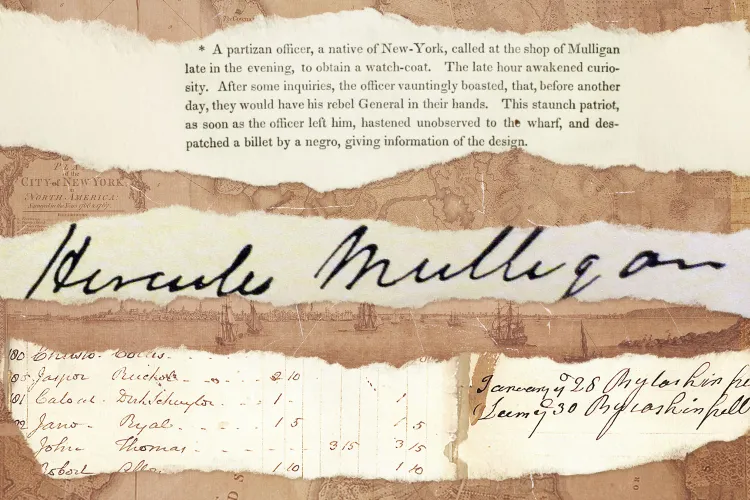 * A partizan officer, a native of New-York, called at the shop of Mulligan
late in the evening, to obtain a watch-coat. The late hour awakened curio-
sity. After some inquiries, the officer vauntingly boasted, that, before another
day, they would have his rebel General in their hands. This staunch patriot,
as soon as the officer left him, hastened unobserved to the wharf, and des-
patched a billet by a negro, giving information of the design.
of the
CITY of NEW YORK
in
NORTH-AMERICA:
Hercules Mulligan
180
Jasper 2 10
181
1 1
Jano Ryal 1 5 1 5
John Thomas 3 15 3 15
Robert 1 10 1 10
January ye 28 By cash in
30 By cash in